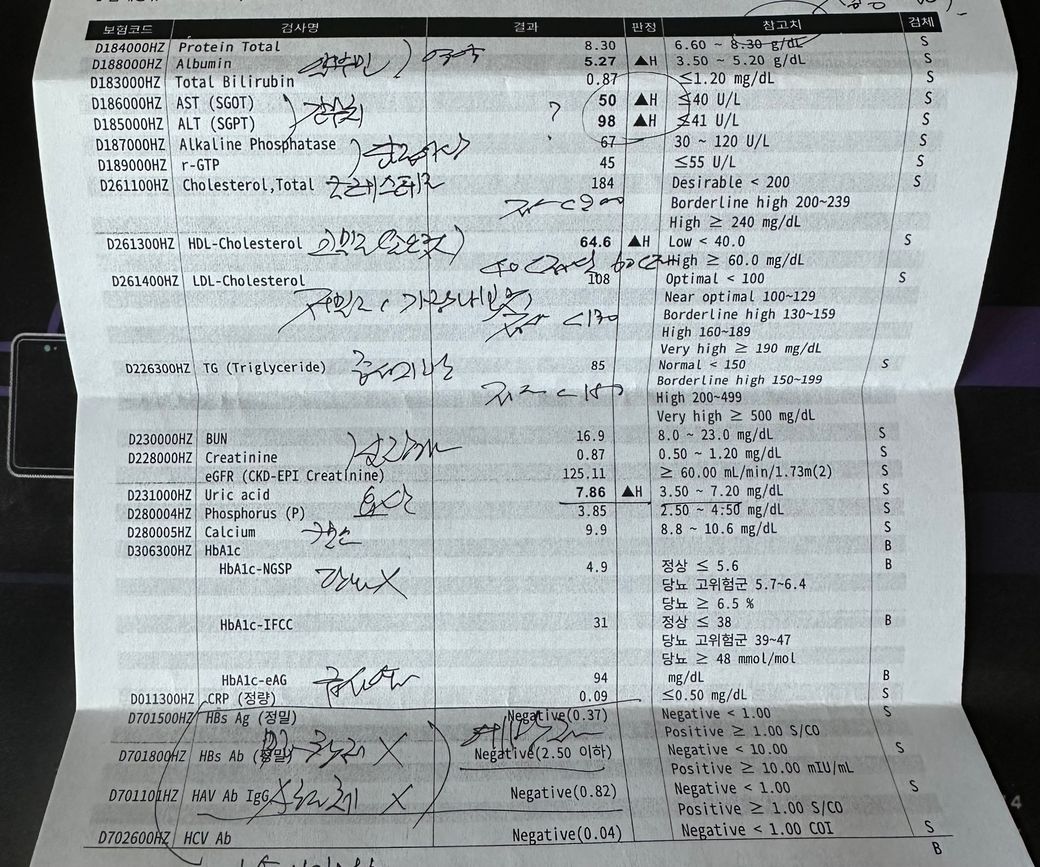 보험코드 검사명 결과 판정 참고치 검체
D184000HZ Protein Total 8.30 6.60 ~ 8.30 g/dL S
D188000HZ Albumin 알부민) 영양 5.27 ▲H 3.50 ~ 5.20 g/dL S
D183000HZ Total Bilirubin 0.87 ≤1.20 mg/dL S
D186000HZ AST (SGOT) 50 ▲H ≤40 U/L S
D185000HZ ALT (SGPT) ? 98 ▲H ≤41 U/L S
D187000HZ Alkaline Phosphatase 67 30 ~ 120 U/L S
D189000HZ r-GTP 45 ≤55 U/L S
D261100HZ Cholesterol,Total 콜레스테롤 184 Desirable < 200 S
<200 Borderline high 200~239
High ≥ 240 mg/dL
D261300HZ HDL-Cholesterol 64.6 ▲H Low < 40.0 S
High ≥ 60.0 mg/dL
D261400HZ LDL-Cholesterol 108 Optimal < 100 S
Near optimal 100~129
<130 Borderline high 130~159
High 160~189
Very high ≥ 190 mg/dL
D226300HZ TG (Triglyceride) 중성지방 85 Normal < 150 S
Borderline high 150~199
High 200~499
Very high ≥ 500 mg/dL
D230000HZ BUN 16.9 8.0 ~ 23.0 mg/dL S
D228000HZ Creatinine 0.87 0.50 ~ 1.20 mg/dL S
eGFR (CKD-EPI Creatinine) 125.11 ≥ 60.00 mL/min/1.73m(2) S
D231000HZ Uric acid 요산 7.86 ▲H 3.50 ~ 7.20 mg/dL S
D280004HZ Phosphorus (P) 3.85 2.50 ~ 4.50 mg/dL S
D280005HZ Calcium 칼슘 9.9 8.8 ~ 10.6 mg/dL S
D306300HZ HbA1c B
HbA1c-NGSP 당뇨 X 4.9 정상 ≤ 5.6 B
당뇨 고위험군 5.7~6.4
당뇨 ≥ 6.5 %
HbA1c-IFCC 31 정상 ≤ 38 B
당뇨 고위험군 39~47
당뇨 ≥ 48 mmol/mol
HbA1c-eAG 94 mg/dL B
D011300HZ CRP (정량) 0.09 ≤0.50 mg/dL S
D701500HZ HBs Ag (정밀) Negative(0.37) Negative < 1.00 S
Positive ≥ 1.00 S/CO
D701800HZ HBs Ab (정밀) X Negative(2.50 이하) Negative < 10.00 S
Positive ≥ 10.00 mIU/mL
D701101HZ HAV Ab IgG X Negative(0.82) Negative < 1.00 S
Positive ≥ 1.00 S/CO
D702600HZ HCV Ab Negative(0.04) Negative < 1.00 COI S
B